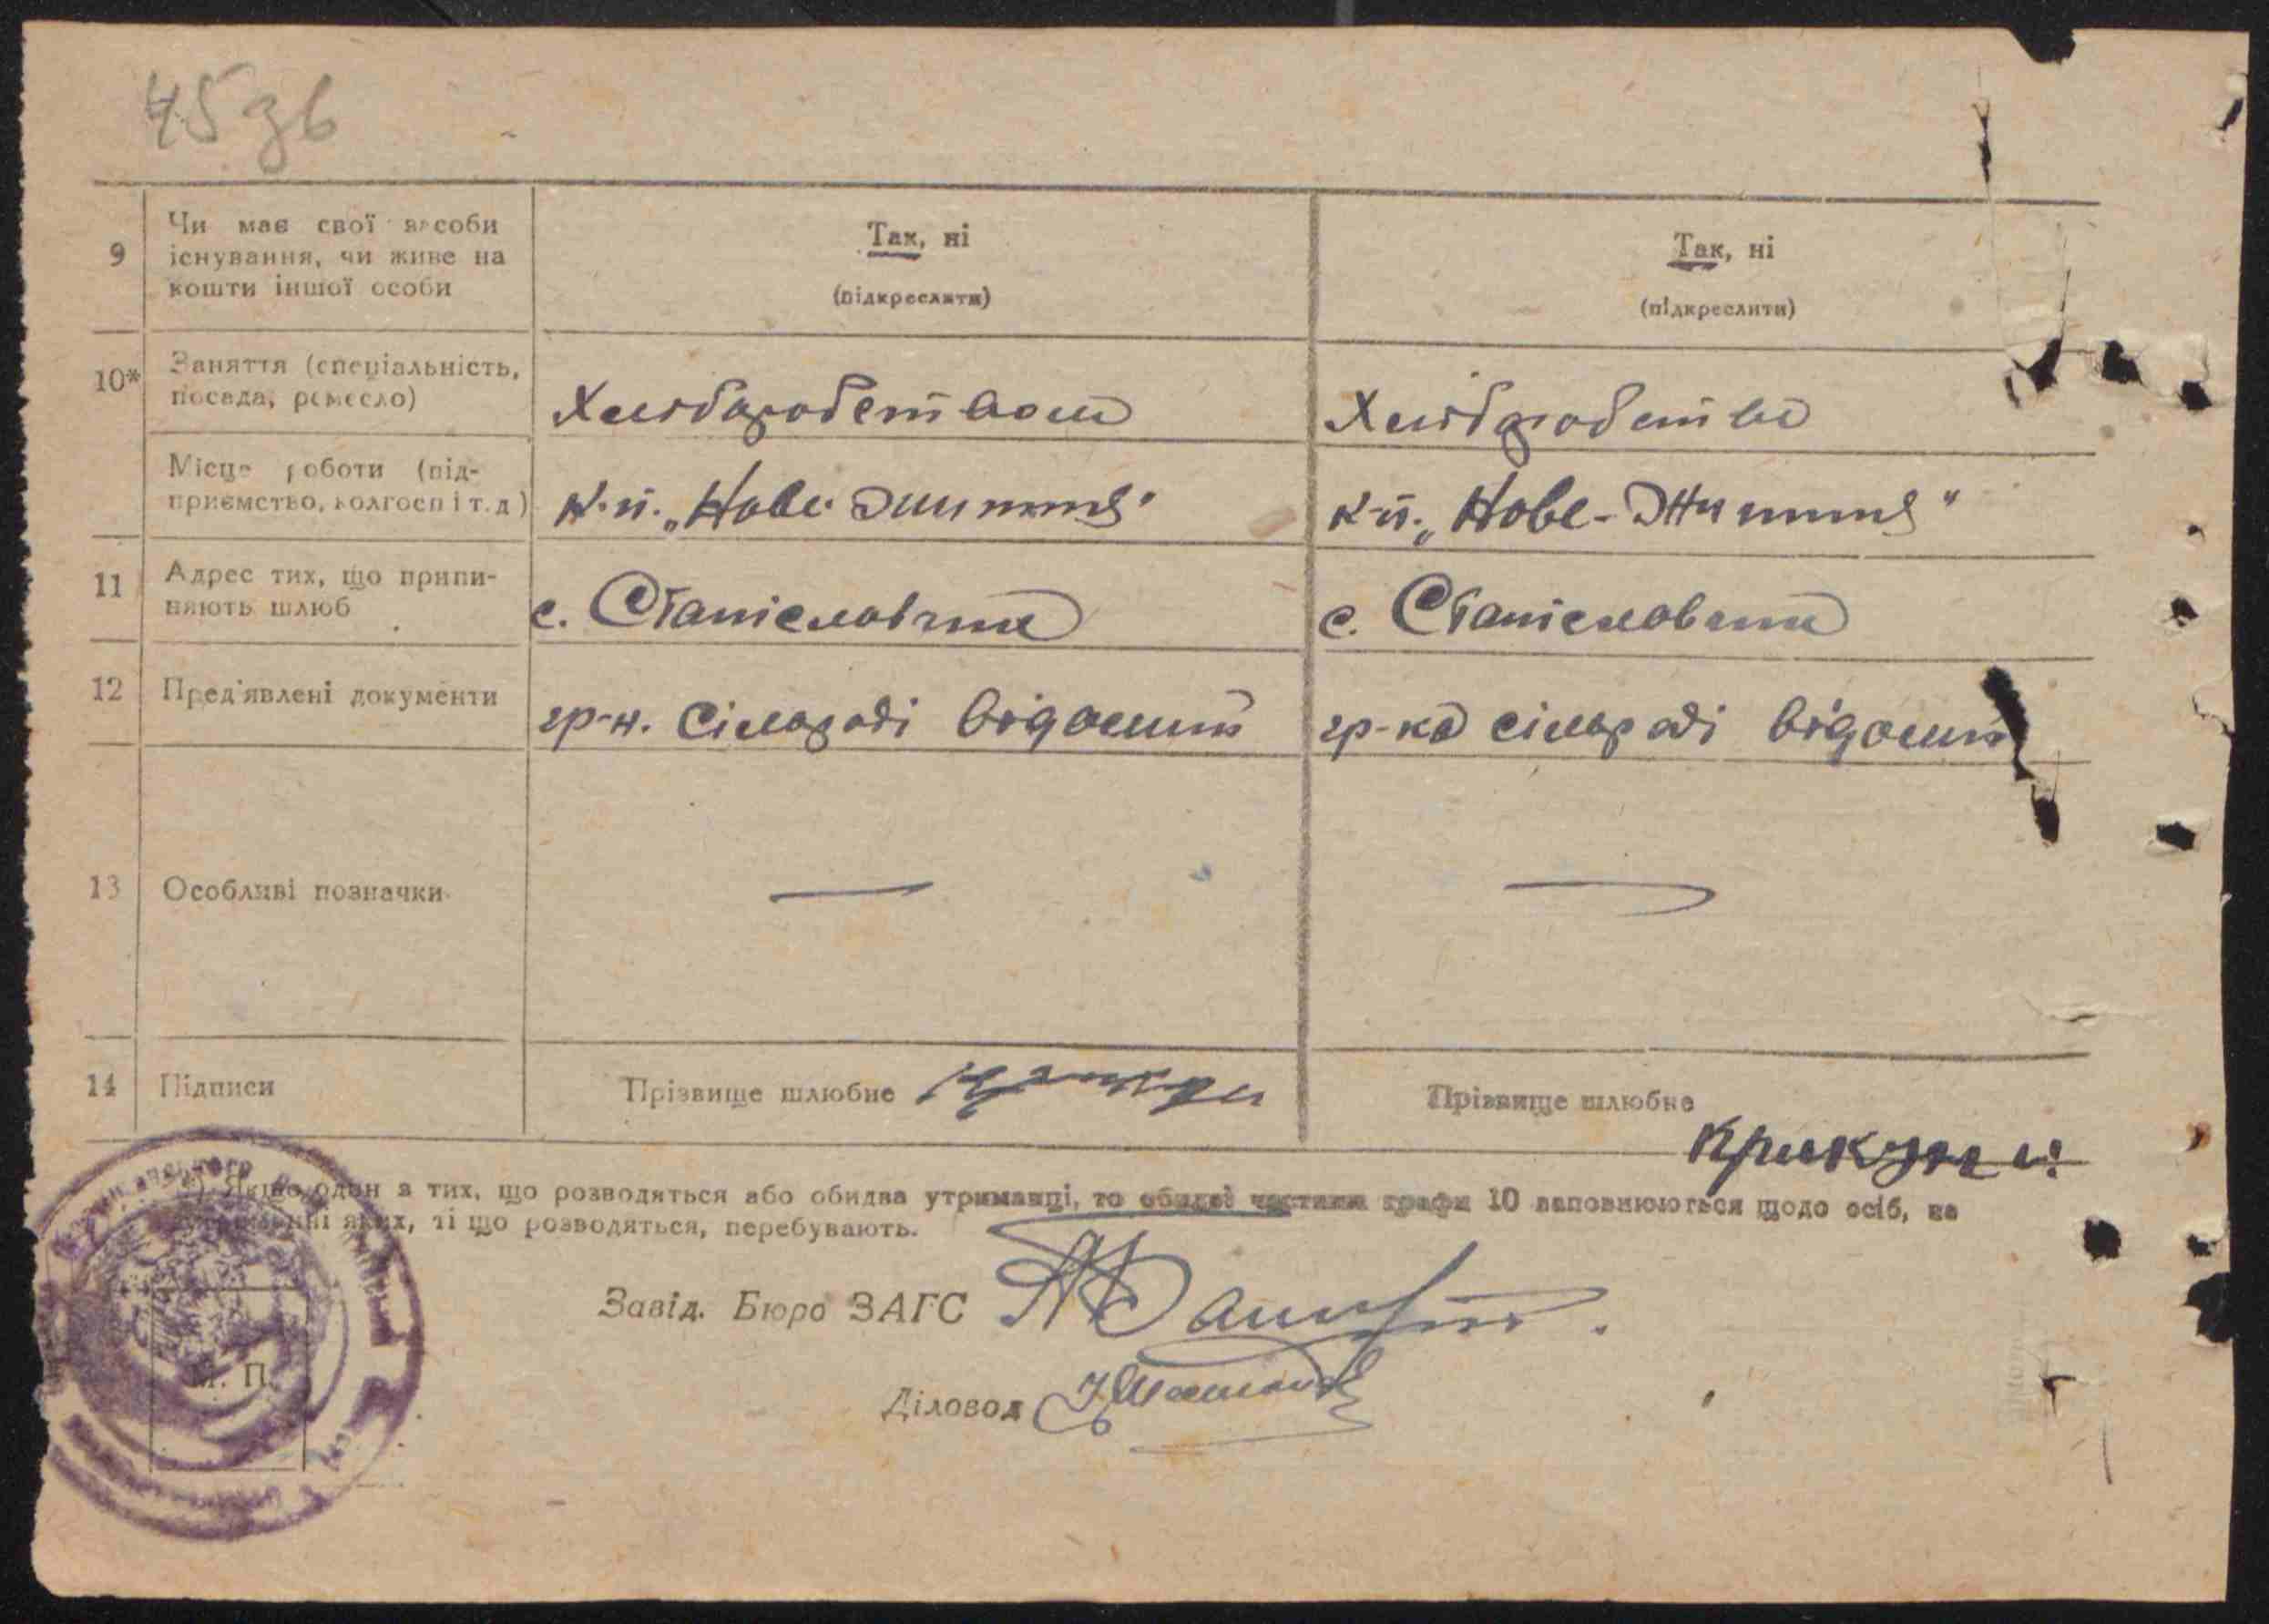 45 зв
9
Чи має свої засоби
існування, чи живе на
кошти іншої особи
Так, ні
(підкреслити)
Так, ні
(підкреслити)
10*
Заняття (спеціальність,
посада, ремесло)
Хлібаробством
Хлібаробство
Місце роботи (під-
приємство, колгосп і т. д)
к-п. „Нове Життя"
к-п. „Нове-Життя"
11
Адрес тих, що припи-
няють шлюб
с. Станіславчик
с. Станіславчик
12
Пред'явлені документи
гр-н. сільраді відомий
гр-ка сільраді відомий
13
Особливі позначки
—
—
14
Підписи
Прізвище шлюбне
Прізвище шлюбне
*) Якщо один з тих, що розводяться або обидва утриманці, то обидві частини графи 10 заповнюються щодо осіб, на
утриманні яких, ті що розводяться, перебувають.
Завід. Бюро ЗАГС
Діловод
М. П.